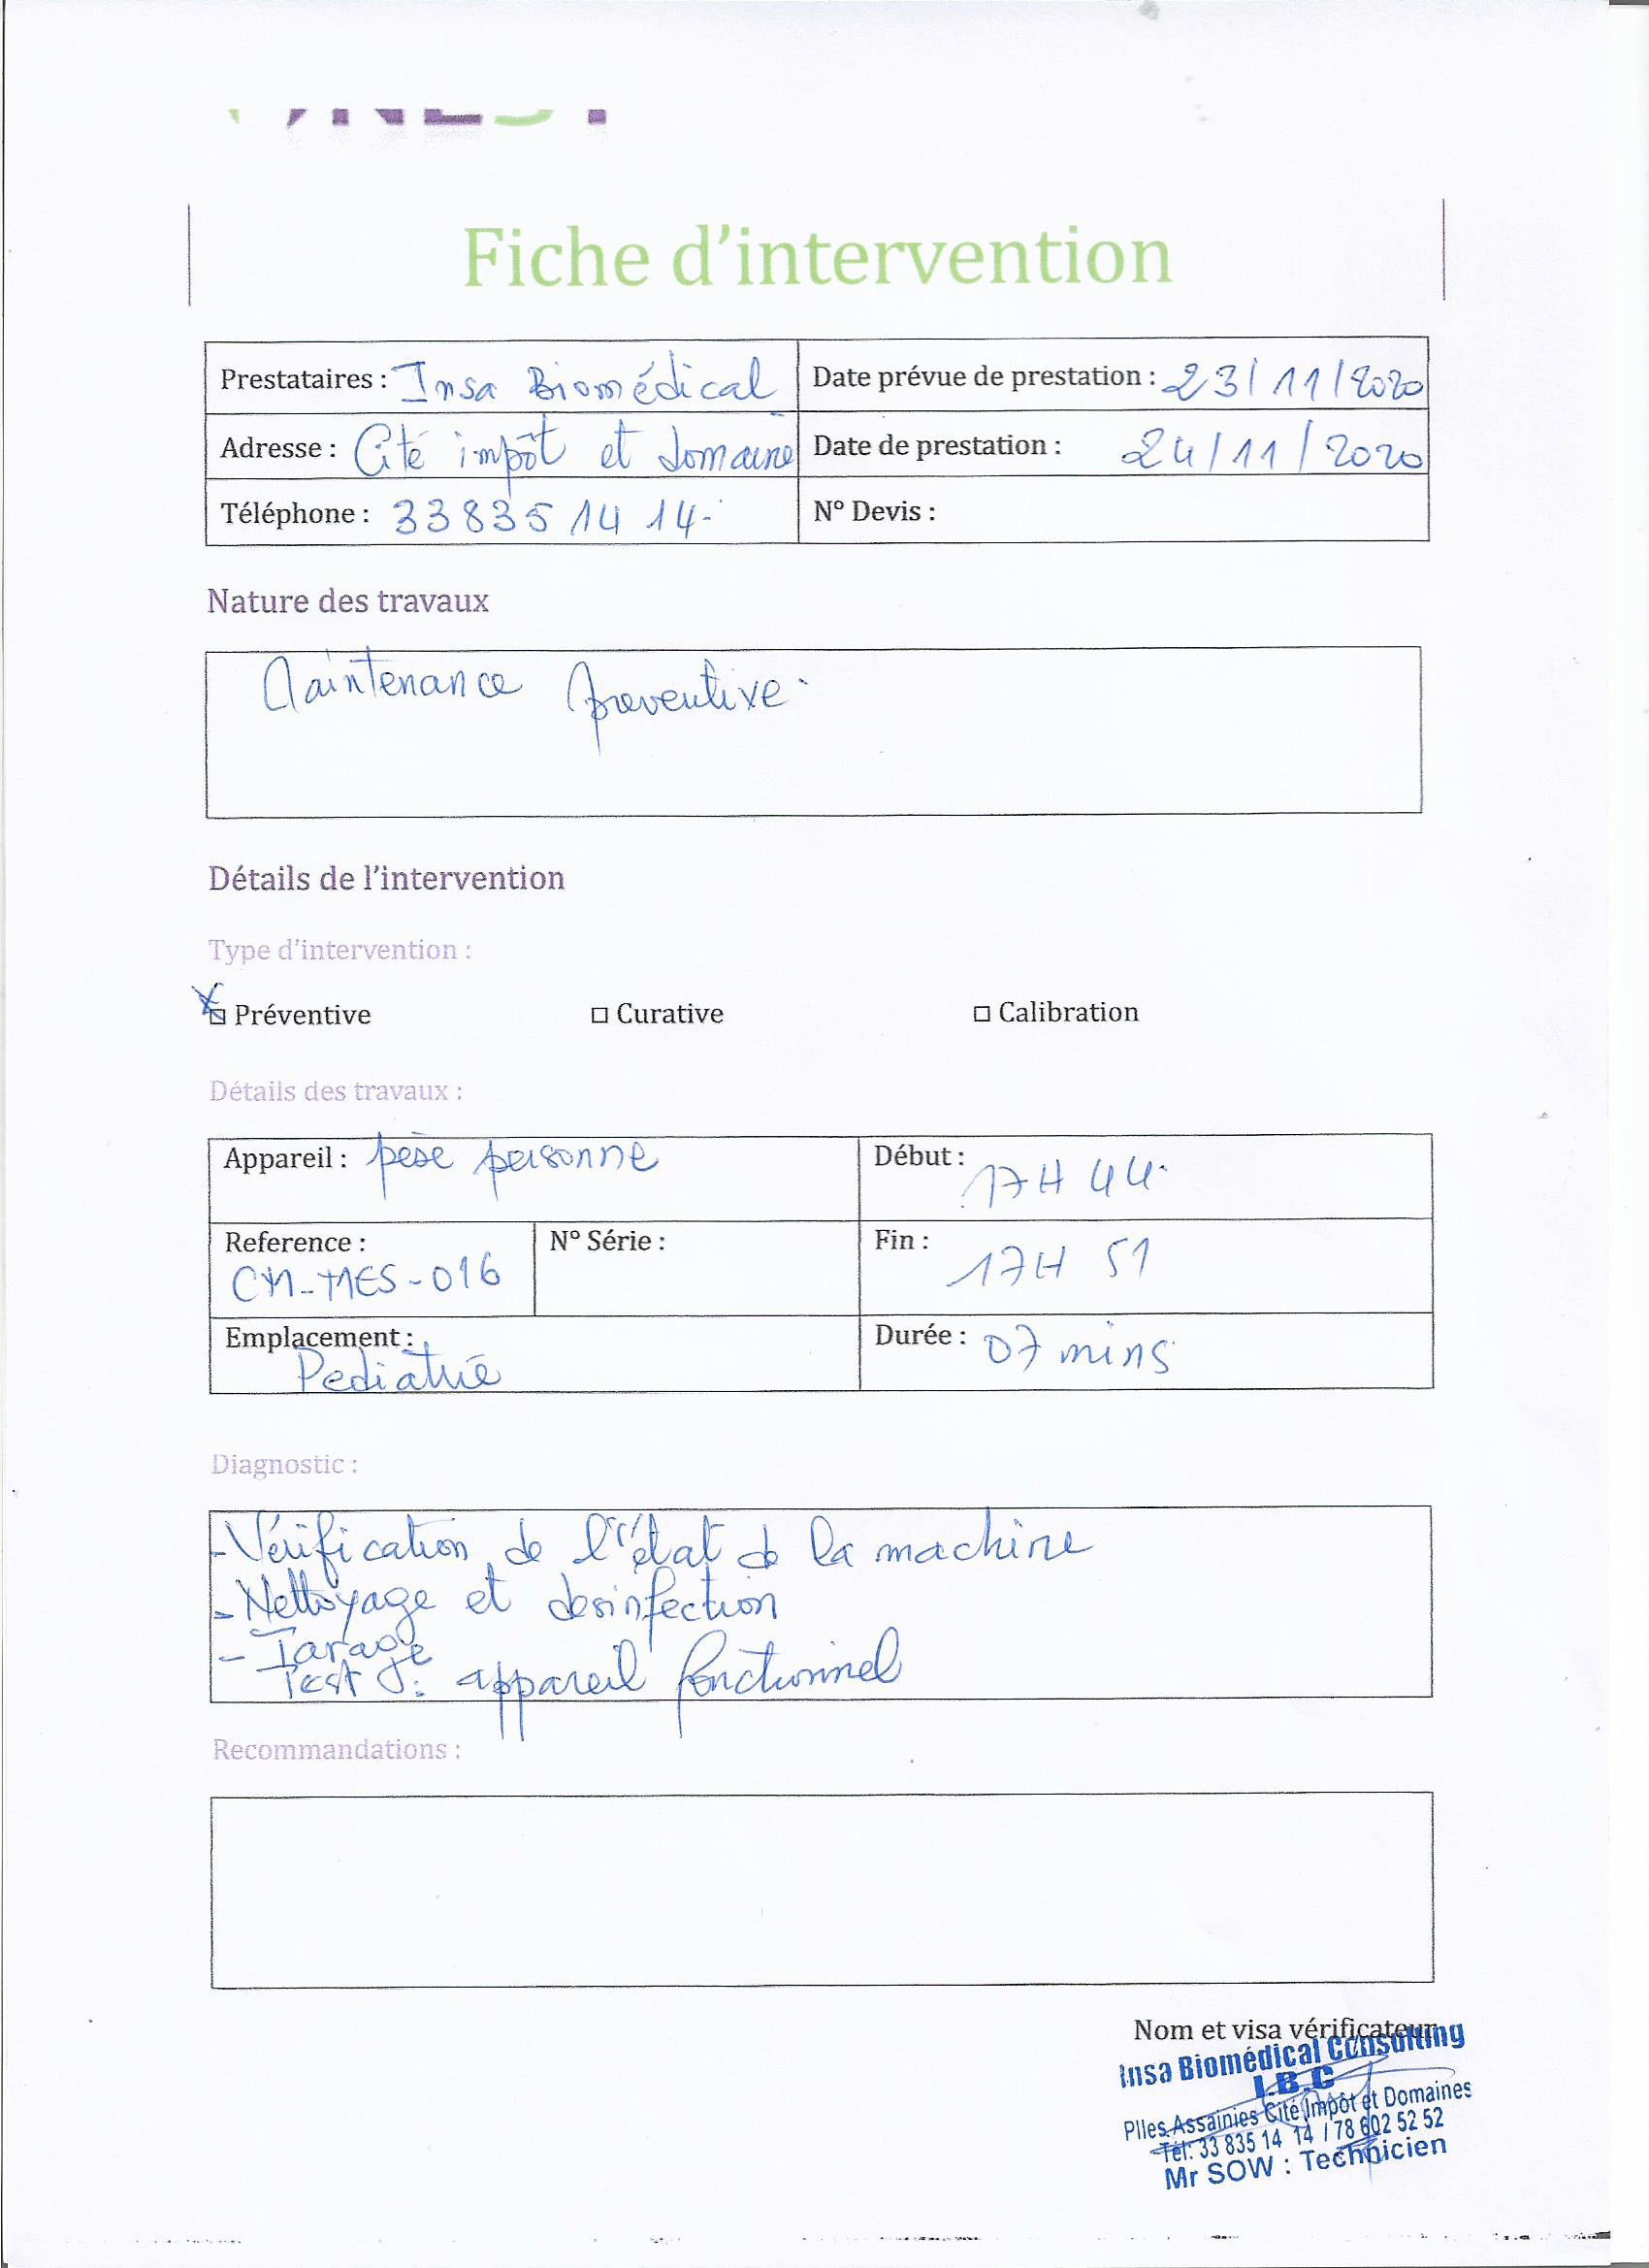 Fiche d'intervention
Prestataires : Insa Biomédical
Date prévue de prestation : 23/11/2020
Adresse : Cité impôt et domaine
Date de prestation : 24/11/2020
Téléphone : 33 835 14 14.
N° Devis :
Nature des travaux
Maintenance preventive.
Détails de l'intervention
Type d'intervention :
Préventive
Curative
Calibration
Détails des travaux :
Appareil : pèse personne
Début : 17H 44.
Reference :
CM-MES-016
N° Série :
Fin : 17H 51
Emplacement :
Pediatrie
Durée : 07 mins
Diagnostic :
- Vérification de l'état de la machine
- Nettoyage et desinfection
- Tarage
Test : appareil fonctionnel
Recommandations :
Nom et visa vérificateur
Insa Biomédical Consulting
I.B.C
Plles Assainies Cité Impôt et Domaines
Tél: 33 835 14 14 / 78 602 52 52
Mr SOW : Technicien